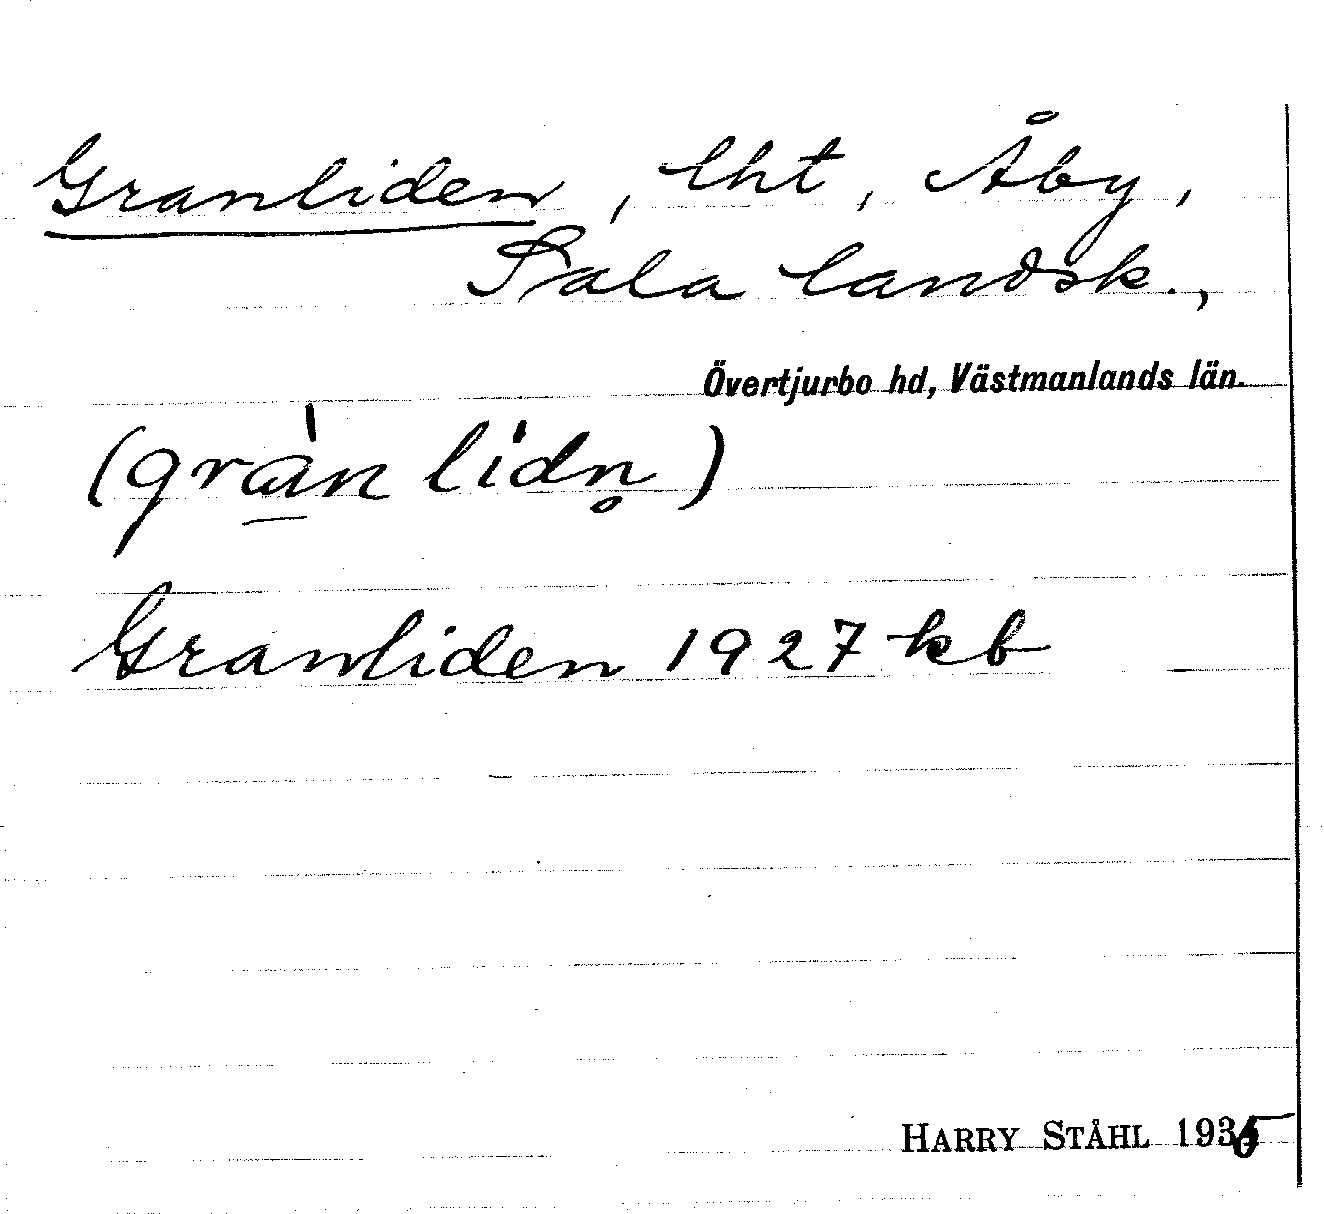 Granliden, lht, Åby,
Sala landsk.,
Övertjurbo hd, Västmanlands län.
(gra̠̍n li̍dn̥)
Granliden 1927 kb
HARRY STÅHL 1935